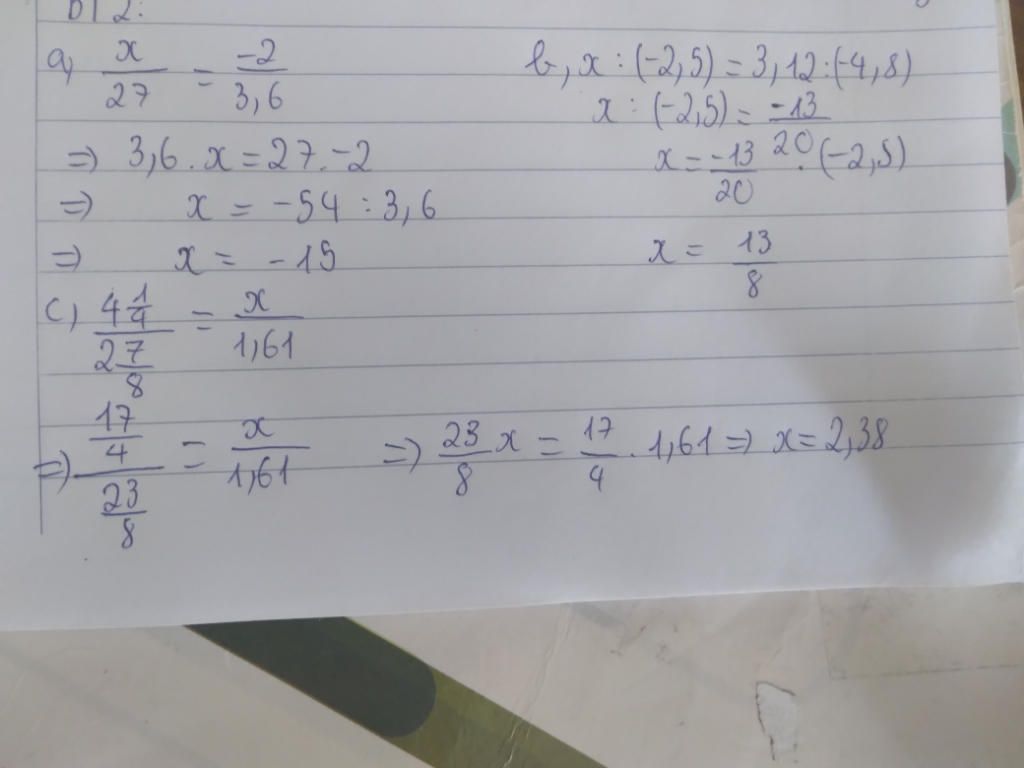 BT 2:
a, x/27 = -2/3,6
=) 3,6 . x = 27 . -2
=) x = -54 : 3,6
=) x = -15
b, x : (-2,5) = 3,12 : (-4,8)
x : (-2,5) = -13/20
x = -13/20 . (-2,5)
x = 13/8
c, (4 1/4)/(2 7/8) = x/1,61
=) (17/4)/(23/8) = x/1,61 =) 23/8 x = 17/4 . 1,61 =) x = 2,38